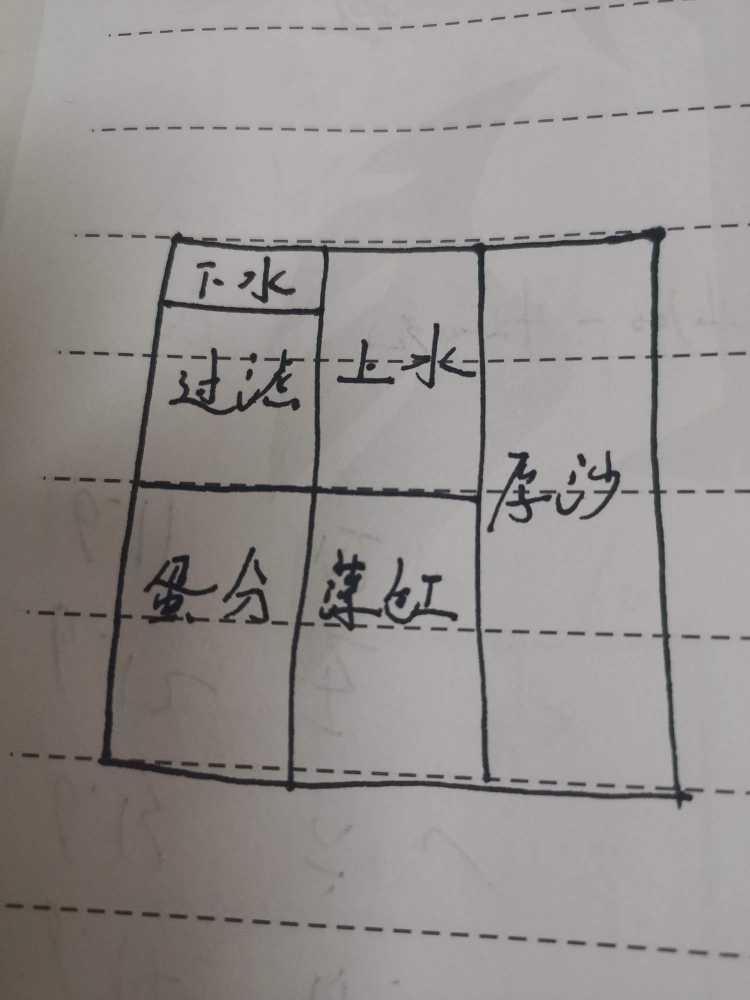 下水
过滤
上水
厚沙
蛋分
藻缸